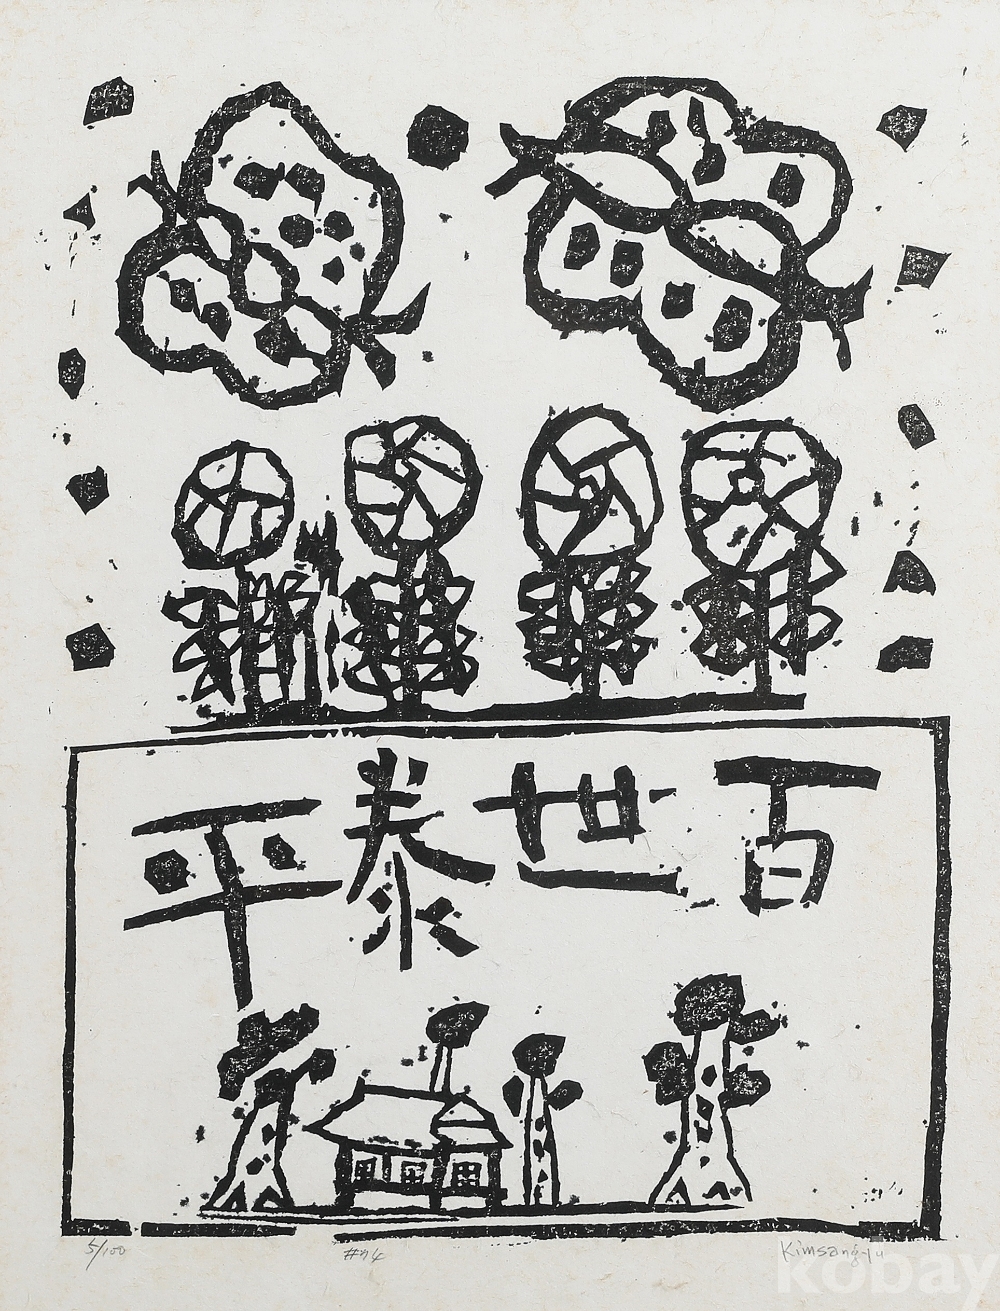 百世泰平
5/100
#74
Kimsangyu
kobay